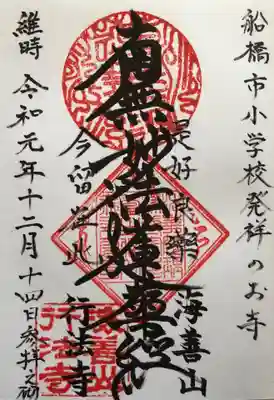 船橋市小学校発祥のお寺
是好良藥
海善山
南無妙法蓮華経
今留在此
行法寺
維時 令和元年十二月十四日参拝之砌